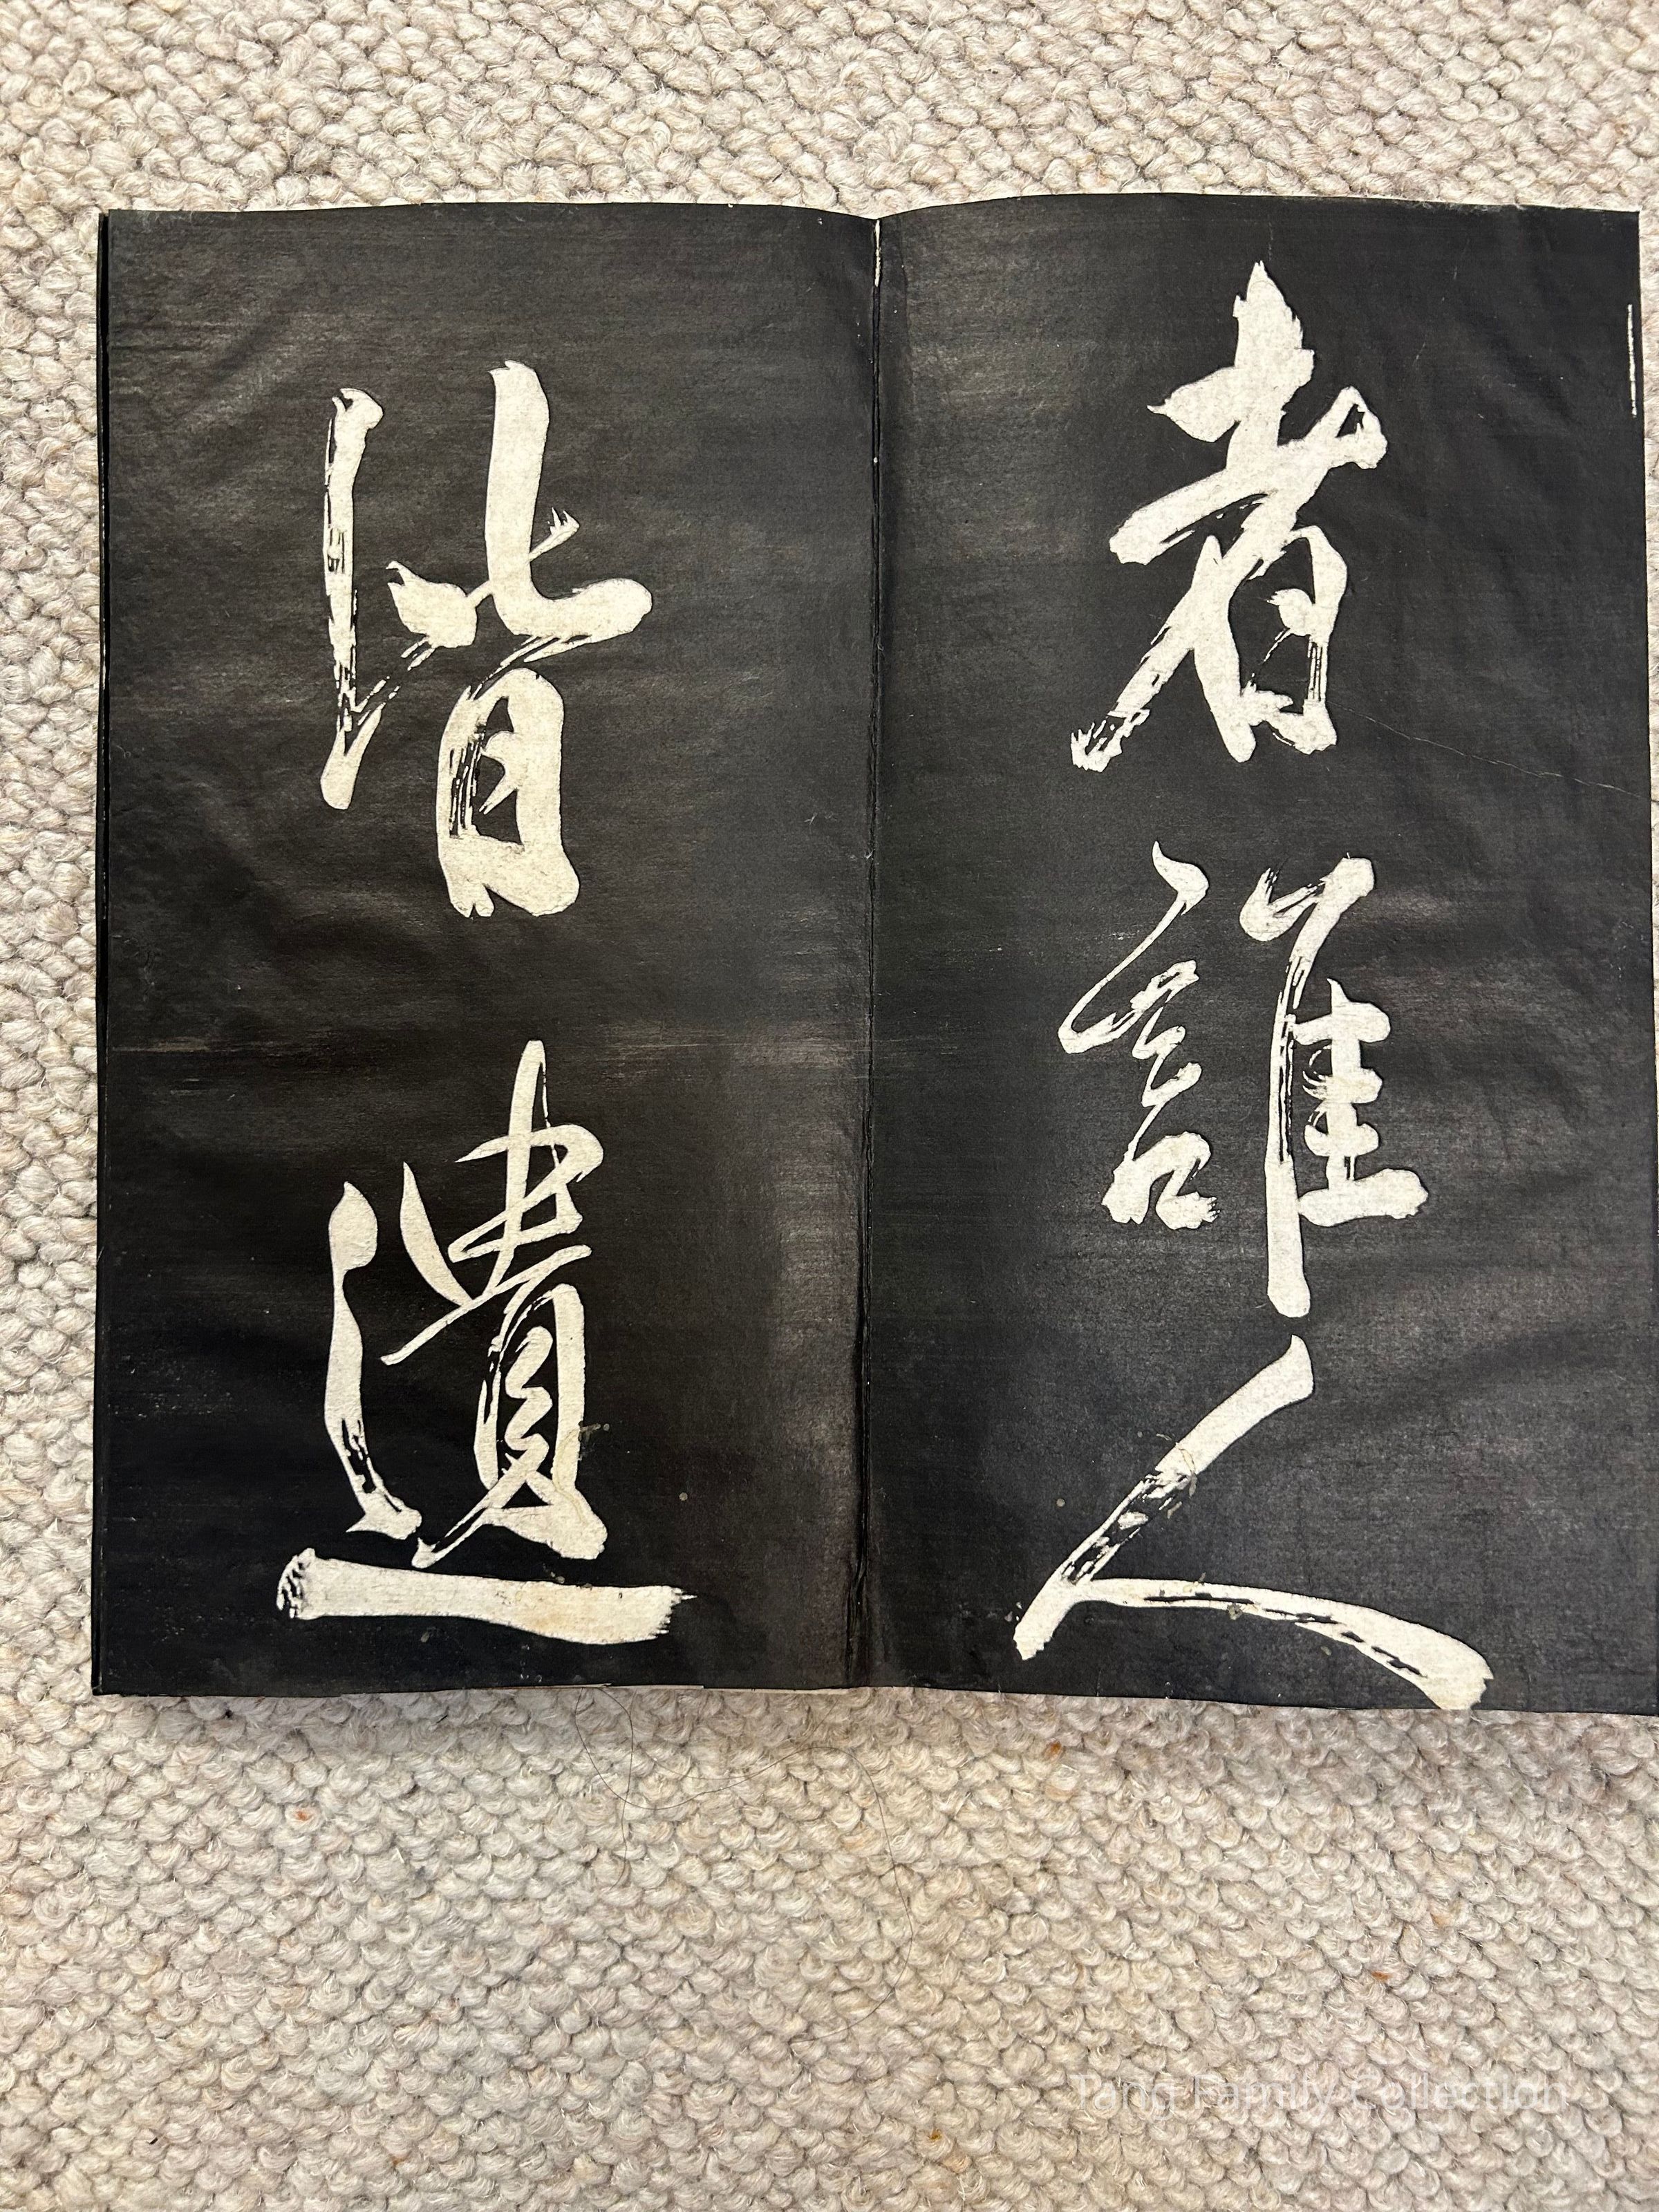 者誰人
皆遺
Tang Family Collection